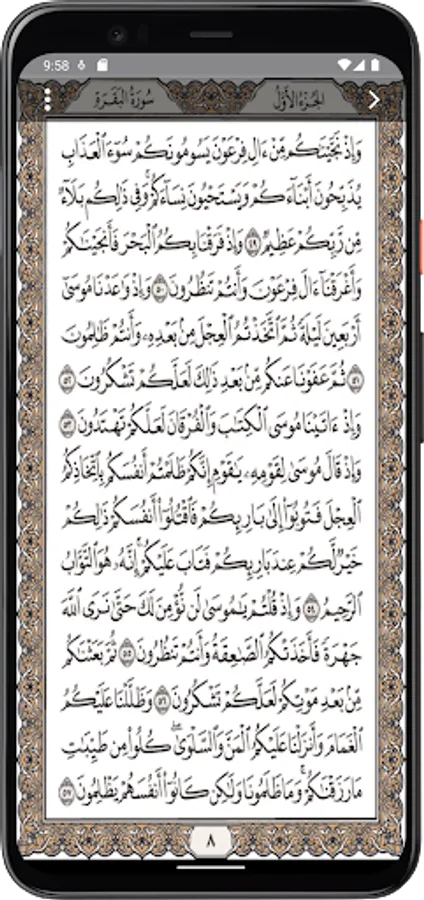 9:58
سُورَةُ البَقَرَةِ
الجُزْءُ الأَوَّلُ
وَإِذْ نَجَّيْنَٰكُم مِّنْ ءَالِ فِرْعَوْنَ يَسُومُونَكُمْ سُوٓءَ ٱلْعَذَابِ
يُذَبِّحُونَ أَبْنَآءَكُمْ وَيَسْتَحْيُونَ نِسَآءَكُمْ ۚ وَفِى ذَٰلِكُم بَلَآءٌ
مِّن رَّبِّكُمْ عَظِيمٌ ٤٩ وَإِذْ فَرَقْنَا بِكُمُ ٱلْبَحْرَ فَأَنجَيْنَٰكُمْ
وَأَغْرَقْنَآ ءَالَ فِرْعَوْنَ وَأَنتُمْ تَنظُرُونَ ٥٠ وَإِذْ وَٰعَدْنَا مُوسَىٰٓ
أَرْبَعِينَ لَيْلَةً ثُمَّ ٱتَّخَذْتُمُ ٱلْعِجْلَ مِنۢ بَعْدِهِۦ وَأَنتُمْ ظَٰلِمُونَ
٥١ ثُمَّ عَفَوْنَا عَنكُم مِّنۢ بَعْدِ ذَٰلِكَ لَعَلَّكُمْ تَشْكُرُونَ ٥٢
وَإِذْ ءَاتَيْنَا مُوسَى ٱلْكِتَٰبَ وَٱلْفُرْقَانَ لَعَلَّكُمْ تَهْتَدُونَ ٥٣
وَإِذْ قَالَ مُوسَىٰ لِقَوْمِهِۦ يَٰقَوْمِ إِنَّكُمْ ظَلَمْتُمْ أَنفُسَكُم بِٱتِّخَاذِكُمُ
ٱلْعِجْلَ فَتُوبُوٓا۟ إِلَىٰ بَارِئِكُمْ فَٱقْتُلُوٓا۟ أَنفُسَكُمْ ذَٰلِكُمْ
خَيْرٌ لَّكُمْ عِندَ بَارِئِكُمْ فَتَابَ عَلَيْكُمْ ۚ إِنَّهُۥ هُوَ ٱلتَّوَّابُ
ٱلرَّحِيمُ ٥٤ وَإِذْ قُلْتُمْ يَٰمُوسَىٰ لَن نُّؤْمِنَ لَكَ حَتَّىٰ نَرَى ٱللَّهَ
جَهْرَةً فَأَخَذَتْكُمُ ٱلصَّٰعِقَةُ وَأَنتُمْ تَنظُرُونَ ٥٥ ثُمَّ بَعَثْنَٰكُم
مِّنۢ بَعْدِ مَوْتِكُمْ لَعَلَّكُمْ تَشْكُرُونَ ٥٦ وَظَلَّلْنَا عَلَيْكُمُ
ٱلْغَمَامَ وَأَنزَلْنَا عَلَيْكُمُ ٱلْمَنَّ وَٱلسَّلْوَىٰ ۖ كُلُوا۟ مِن طَيِّبَٰتِ
مَا رَزَقْنَٰكُمْ ۖ وَمَا ظَلَمُونَا وَلَٰكِن كَانُوٓا۟ أَنفُسَهُمْ يَظْلِمُونَ ٥٧
٨